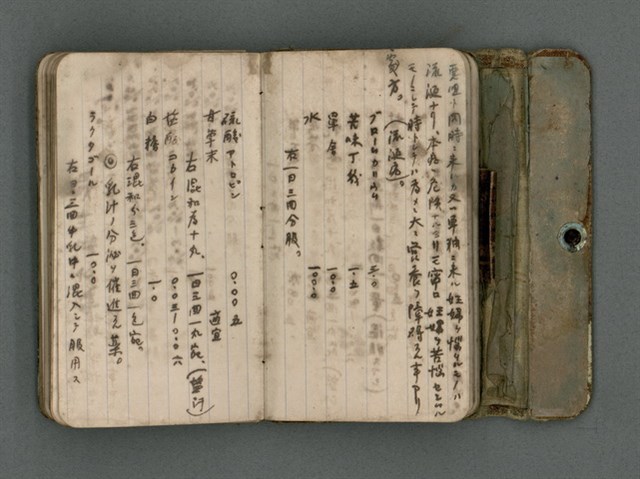 悪阻ト同時ニ来ルカ又ハ単独ニ来ル妊婦ヲ悩ますモノハ
流涎ナリ、本病ハ危険ナルモノニ非ザルモ妊婦ヲ苦悩セシムル
モノニシテ時トシテハ為メニ大ニ営養ヲ障碍スル事アリ
処方。(流涎病)。
ブロームカリウム 三.〇
苦味丁幾 一.五
単舎 一〇.〇
水 一〇〇.〇
右一日三回分服。
硫酸アトロピン 〇.〇〇五
甘草末 適宜
右混和為十丸、一日三回一丸宛。(盗汗)
塩酸コカイン 〇.〇三|〇.〇六
白糖 一.〇
右混和分三包、一日三回一包宛。
◎乳汁ノ分泌ヲ催進スル薬。
ラクタゴール 一〇.〇
右一日三回牛乳中ニ混入シテ服用ス